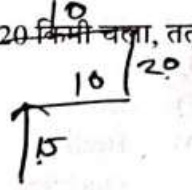 10
20 किमी चला, तत
20
10
15